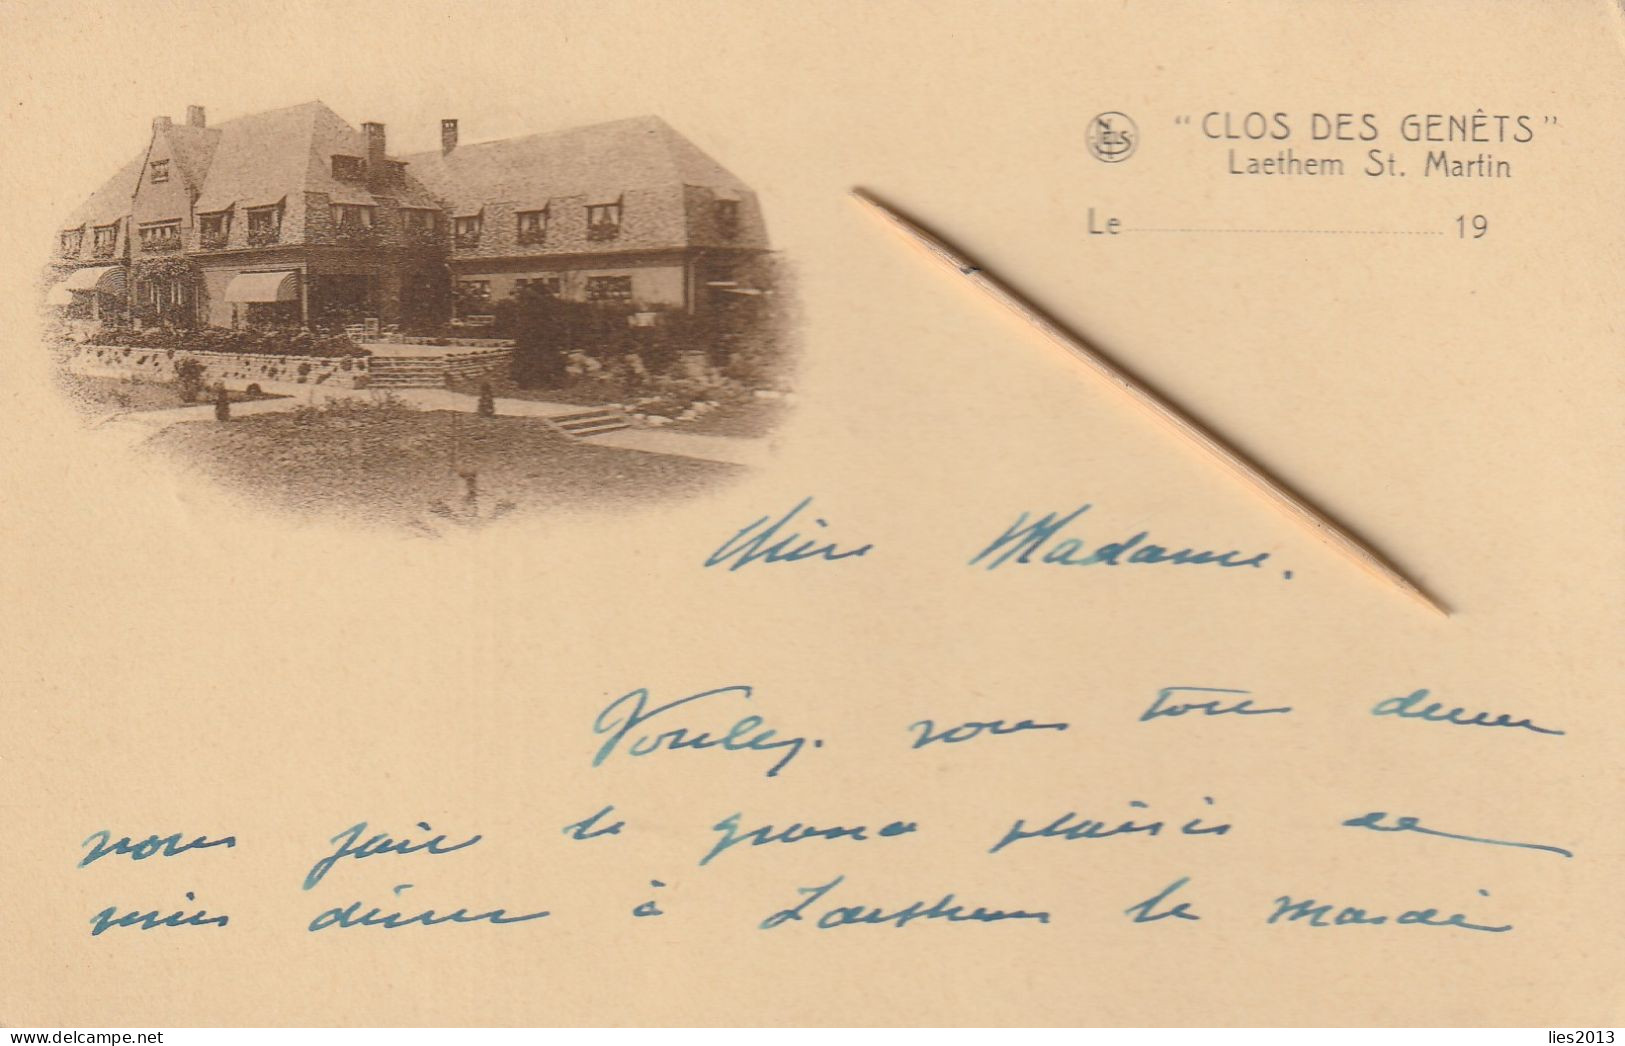 NELS
"CLOS DES GENÊTS"
Laethem St. Martin
Le 19
Chère Madame.
Voulez. vous tous deux
nous faire le grand plaisir de
venir dîner à Laethem le Mardi
lies2013